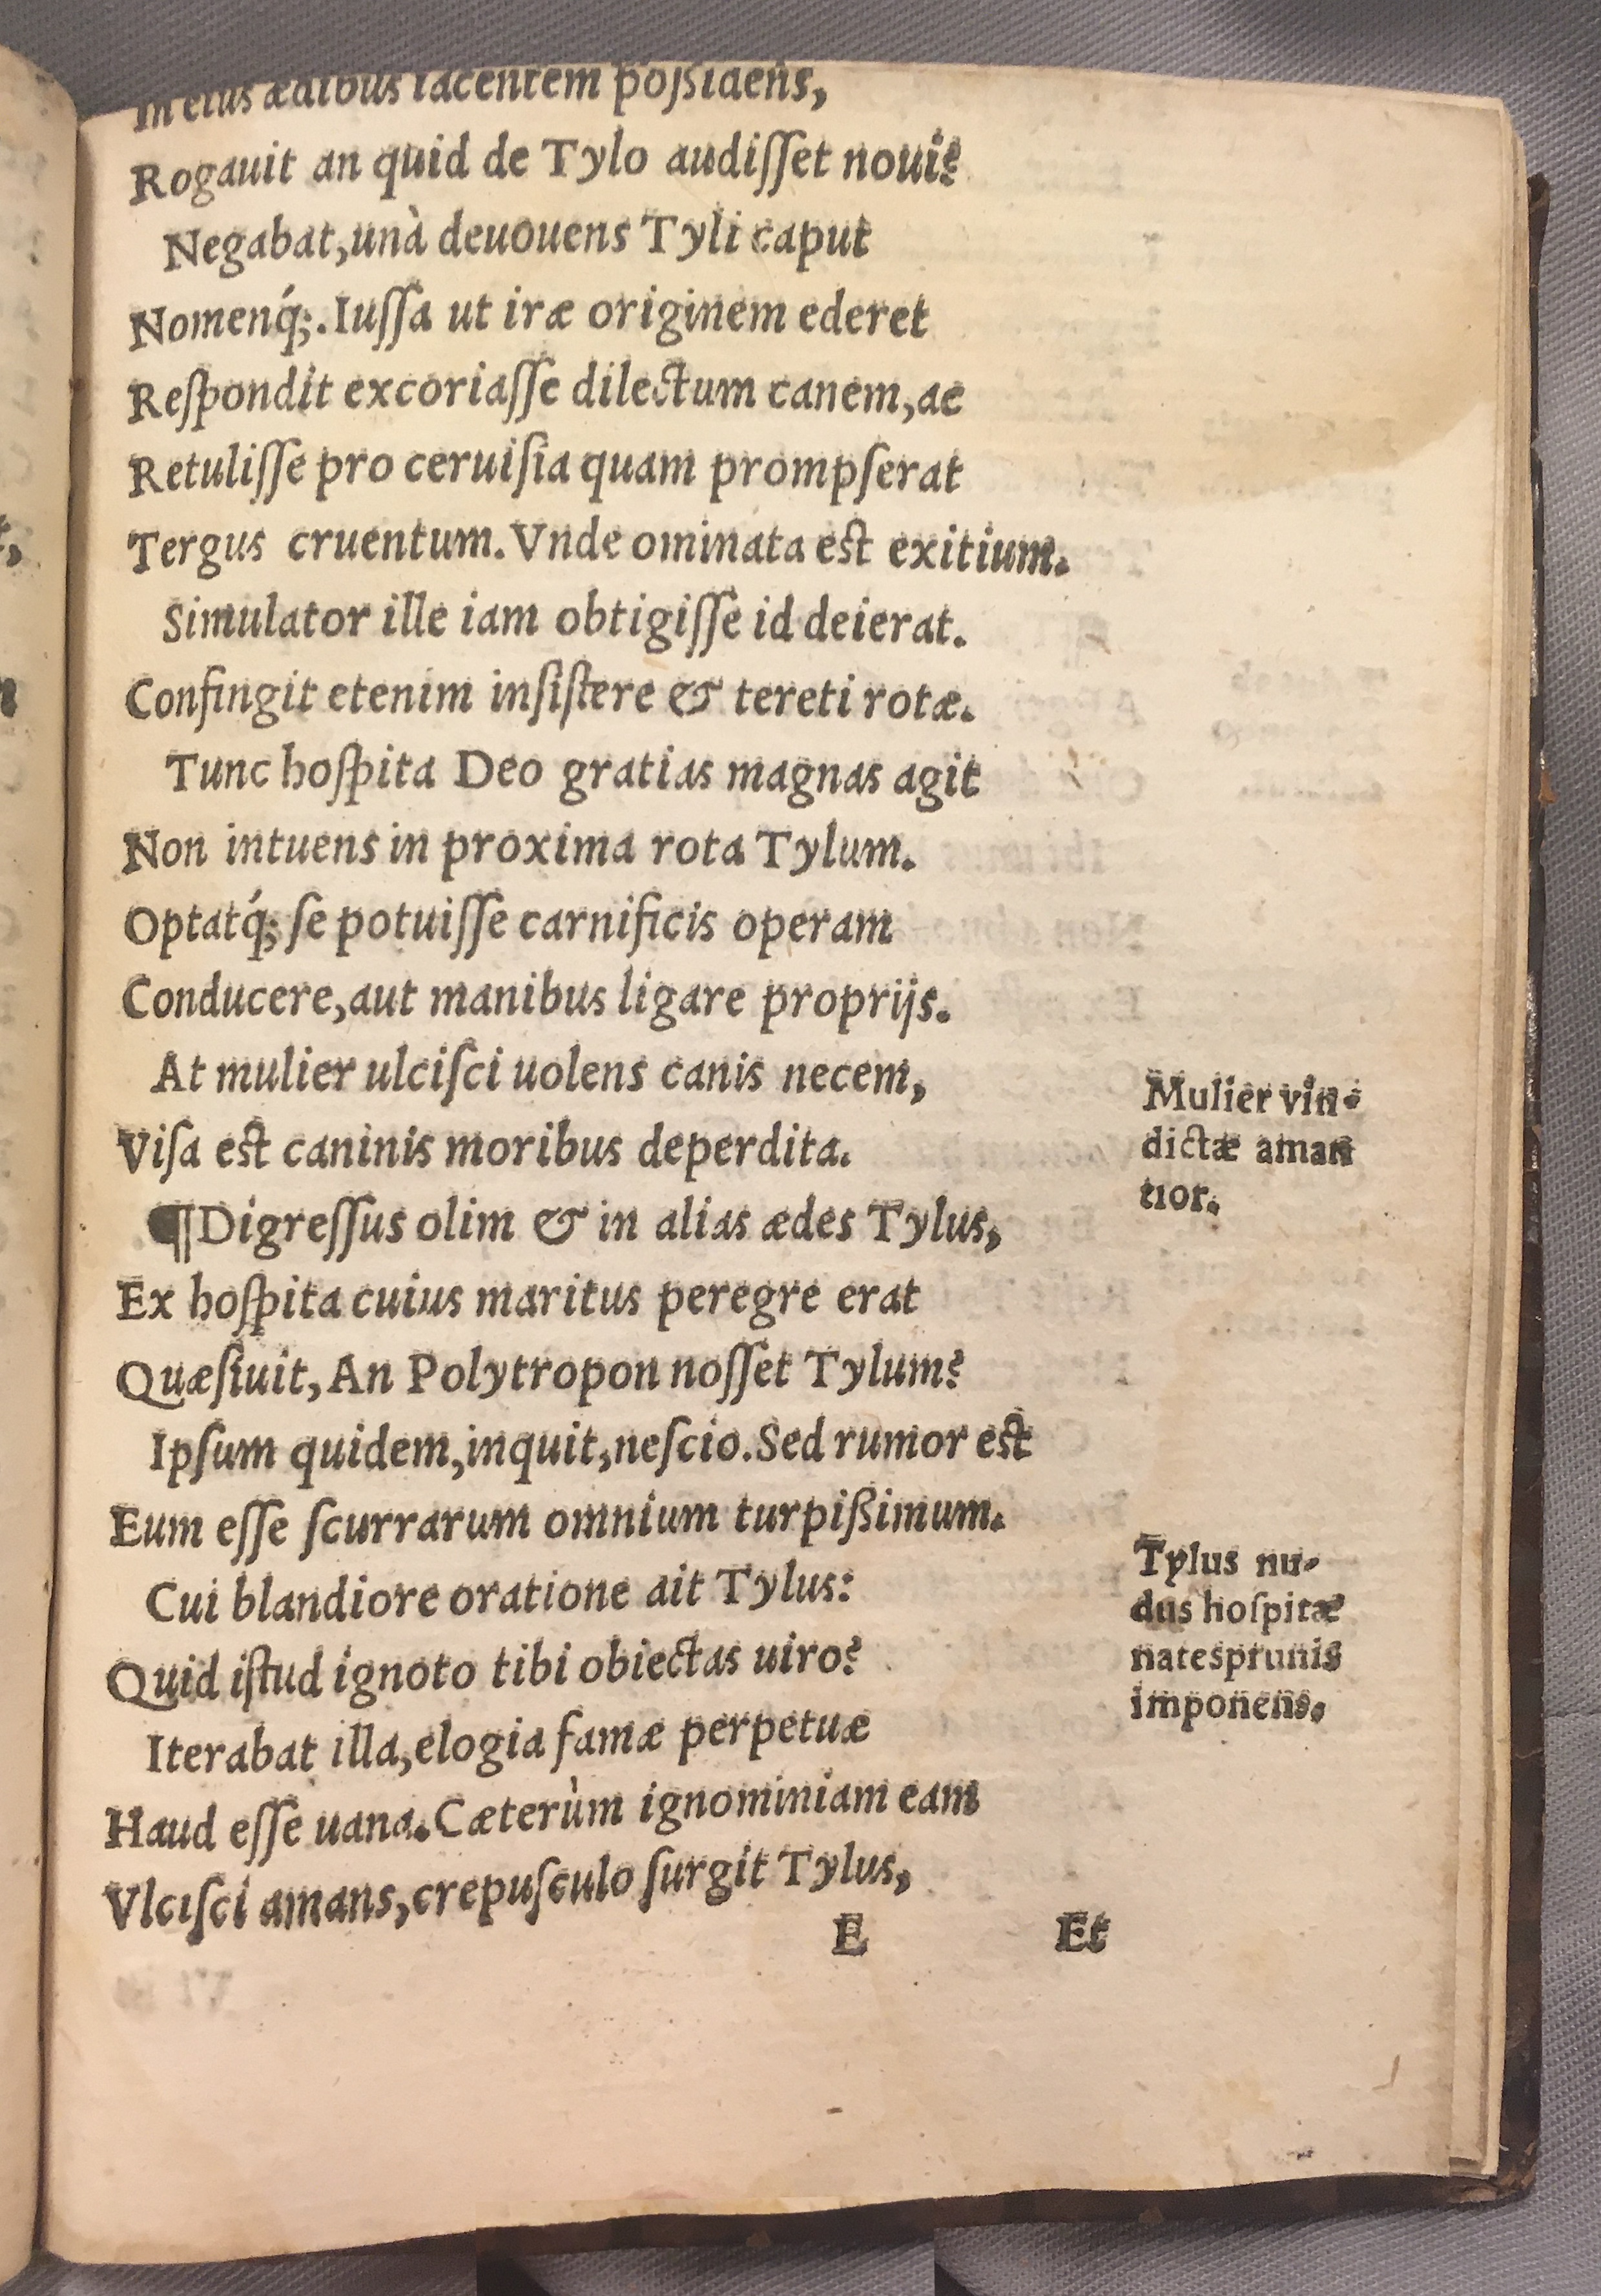 In eius ædibus iacentem poſsidens,
Rogauit an quid de Tylo audiſſet noui?
Negabat, unà deuouens Tyli caput
Nomenq́;. Iuſſa ut iræ originem ederet
Reſpondit excoriaſſe dilectum canem, ac
Retuliſſe pro ceruiſia quam prompſerat
Tergus cruentum. Vnde ominata est exitium.
Simulator ille iam obtigiſſe id deierat.
Confingit etenim inſiſtere & tereti rotæ.
Tunc hoſpita Deo gratias magnas agit
Non intuens in proxima rota Tylum.
Optatq́; ſe potuiſſe carnificis operam
Conducere, aut manibus ligare proprijs.
At mulier ulciſci uolens canis necem,
Viſa est caninis moribus deperdita.
Mulier vin-
dictæ aman
tior.
¶ Digreſſus olim & in alias ædes Tylus,
Ex hoſpita cuius maritus peregre erat
Quæſiuit, An Polytropon noſſet Tylum?
Ipſum quidem, inquit, neſcio. Sed rumor est
Eum eſſe ſcurrarum omnium turpißimum.
Cui blandiore oratione ait Tylus:
Quid iſtud ignoto tibi obiectas uiro?
Iterabat illa, elogia famæ perpetuæ
Haud eſſe uana. Cæterùm ignominiam eam
Vlciſci amans, crepuſculo ſurgit Tylus,
Tylus nu-
dus hoſpitæ
nates prunis
imponens.
E Et